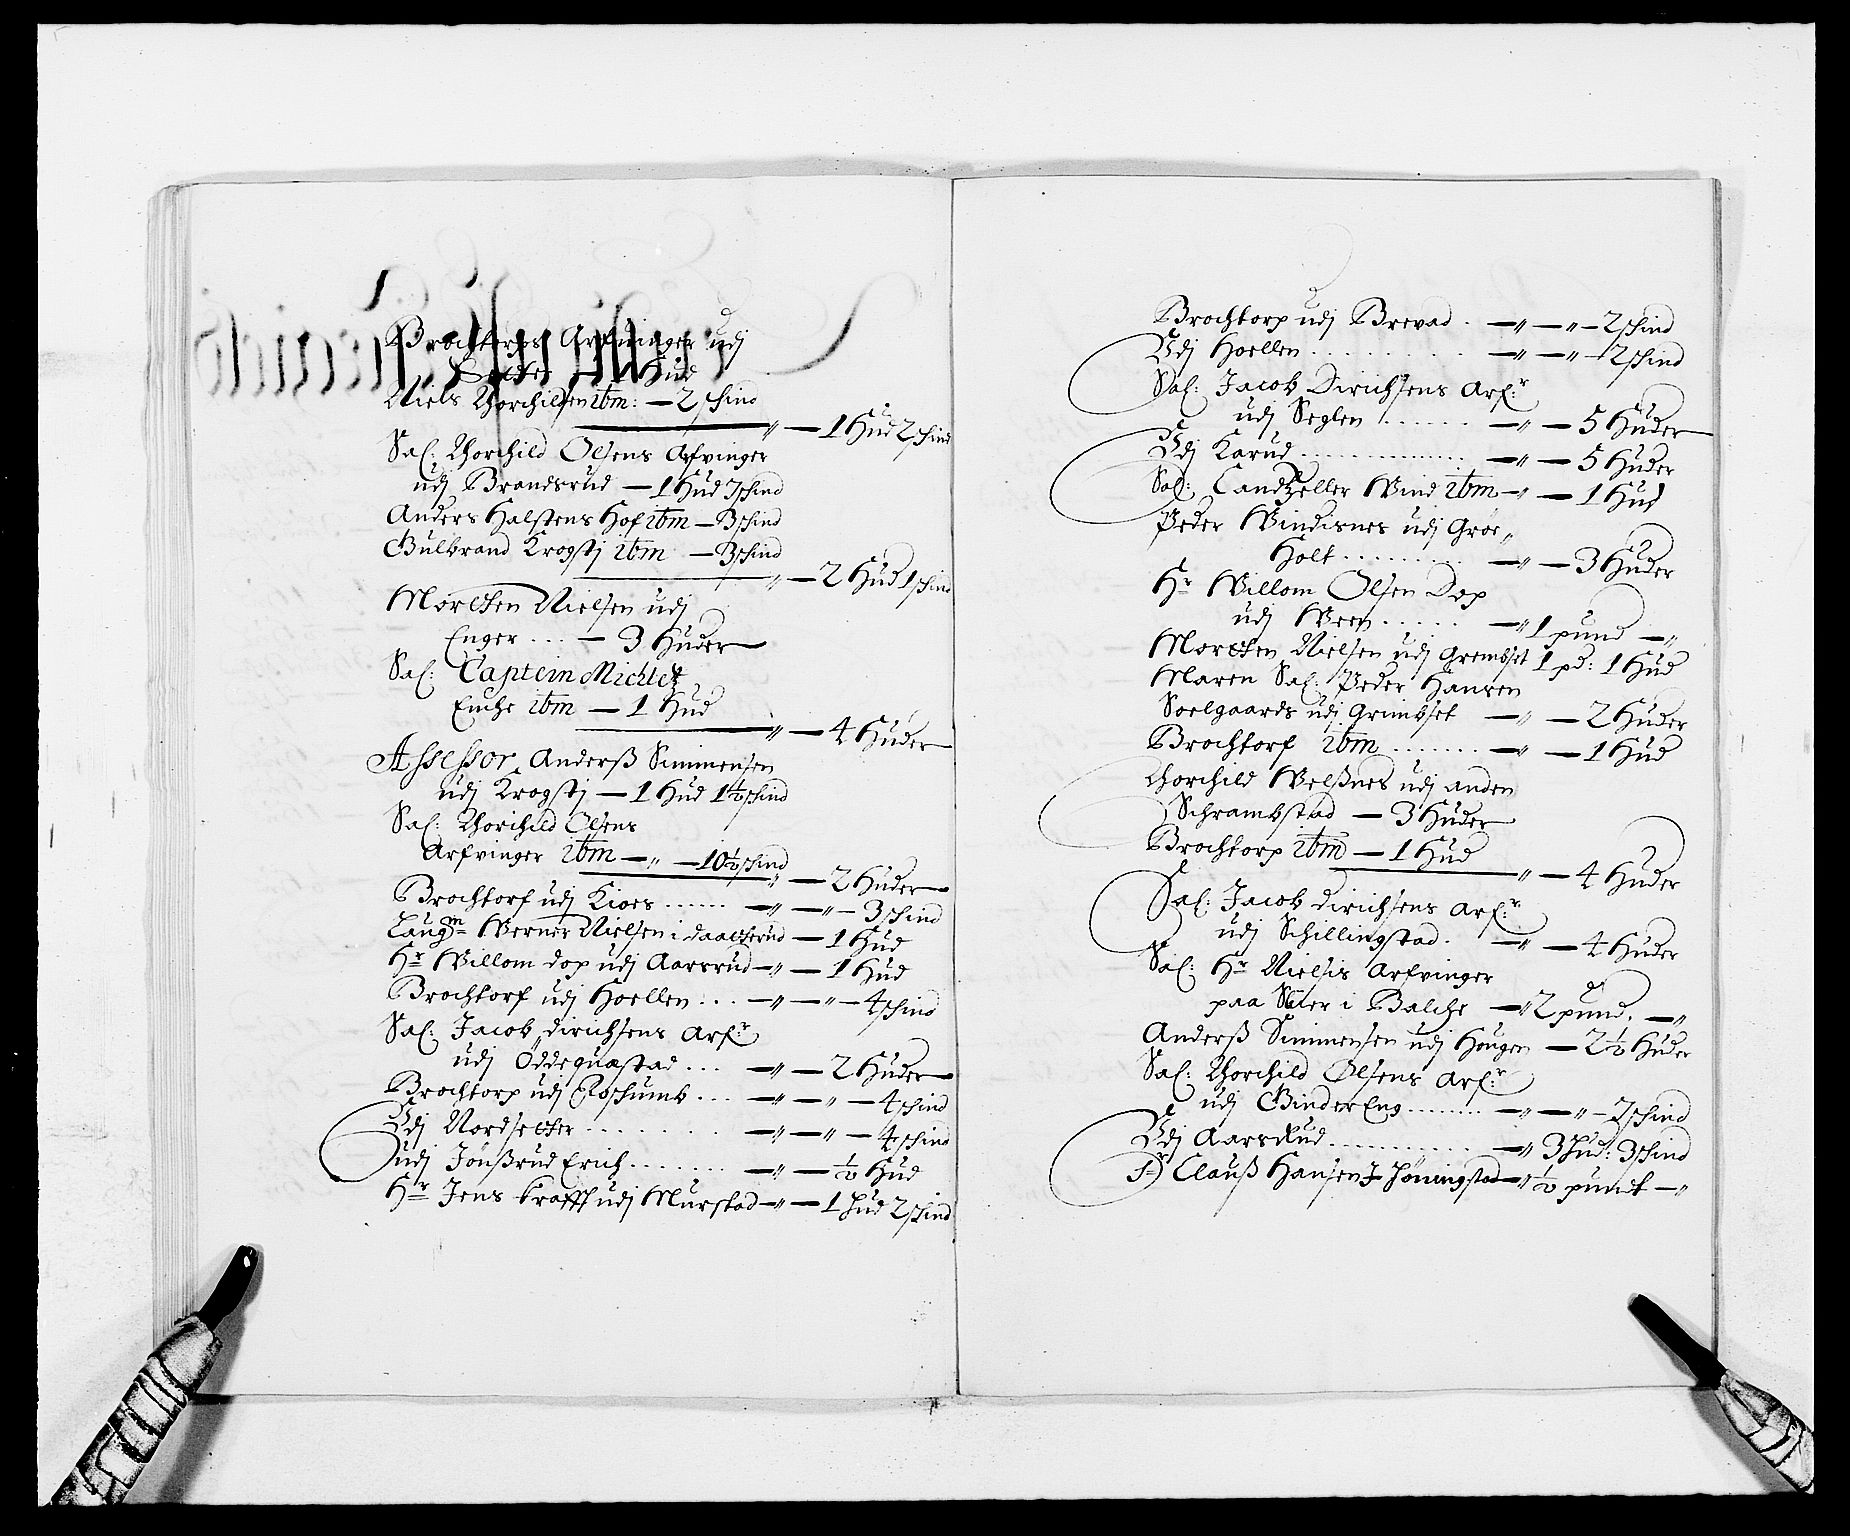 Brochtorps Arfvinger udj
1 Hud
Niels Thorchilsen ibm: — 2 schind
" — 1 Hud 2 schind
Sal: Thorchild Olsens Arfvinger
udj Brandsrud — 1 Hud 7 schind
Anders Halstens Hof ibm — 3 schind
Gulbrand Krogstj ibm — 3 schind
" — 2 Hud 1 schind
Morthen Nielsen udj
Enger ... — 3 Huder
Sal: Captein Michel
Euche ibm — 1 Hud
" — 4 Huder
Assessor Anderß Simmensen
udj Krogstj — 1 Hud 1½ schind
Sal: Thorchild Olsens
Arfvinger ibm — " — 10½ schind
" — 2 Huder
Brochtorf udj Kioes ...... — " — " — 3 schind
Laugm Werner Nielsen i Daalherud — 1 Hud
Hr Willom Dop udj Aarsrud — " — 1 Hud
Brochtorf udj Hoellen: ... — " — " — 4 schind
Sal: Jacob Dirichsens Arf:r
udj Oddequastad ... — " — 2 Huder
Brochtorp udj Roshumb ... — " — " — 4 schind
Udj Nordsether ......... — " — " — 4 schind
udj Jonßrud Erich ....... — " — ½ Hud
Hr Jens Krafft udj Murstad — " — 1 Hud 2 schind
Brochtorp udj Brevad . — " — " — 2 schind
Udj Hoellen .......... — " — " — 2 schind
Sal: Jacob Dirichsens Arf:r
udj Seglen ...... — " — 5 Huder
Udj Karud .............. — " — 5 Huder
Sal: Candtzeller Wind ibm — " — 1 Hud
Peder Windisnes udj Groe„
Holt ......... — " — 3 Huder
Hr Willom Olsen Dop
udj Ween ...... — " 1 pund — "
Morthen Nielsen udj Grembset 1 pd: 1 Hud
Maren Sal: Peder Hansen
Soelgaards udj Grimbset — " — 2 Huder
Brochtorf ibm ....... — " — 1 Hud
Thorchild Welßnes udj anden
Schrambstad — 3 Huder
Brochtorp ibm — 1 Hud
" — 4 Huder
Sal: Jacob Dirichsens Arf:r
udj Schillingstad . — " — 4 Huder
Sal: Hr Nielsis Arfvinger
paa Sæter i Balche — " 2 pund. — "
Anderß Simmensen udj Hougen — 2½ Huder
Sal: Thorchild Olsens Arf:r
udj Ginder Eng ........ — " — " — 2 schind
Udj Aarsrud ........... — " 3 Hud: 3 schind
Hr Clauß Hansen J Honingstad — " ½ pundt — "